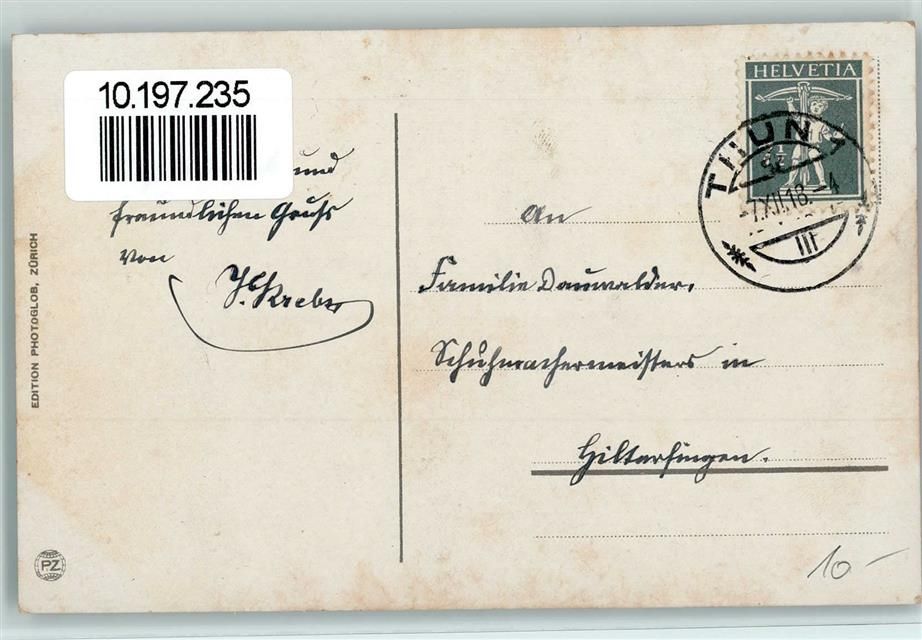 10.197.235
und
freundlichen Gruß
von
Krebs
EDITION PHOTOGLOB, ZÜRICH
PZ
HELVETIA
THUN 1
7.XII.18.-4
III
An
Familie Dauwalder,
Schuhmachermeisters in
Hilterfingen.
10-